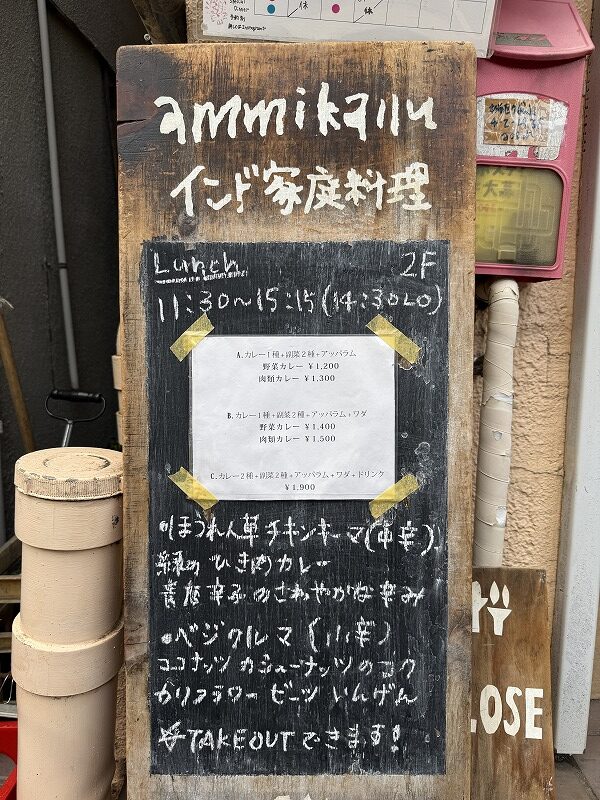 ammikallu
インド家庭料理
Lunch 2F
11:30〜15:15(14:30LO)
A.カレー1種+副菜2種+アッパラム
野菜カレー ¥1,200
肉類カレー ¥1,300
B.カレー1種+副菜2種+アッパラム+ワダ
野菜カレー ¥1,400
肉類カレー ¥1,500
C.カレー2種+副菜2種+アッパラム+ワダ+ドリンク
¥1,900
●ほうれん草チキンキーマ(中辛)
緑のひき肉カレー
青唐辛子のさわやかな辛み
●ベジクルマ(小辛)
ココナッツ カシューナッツのコク
カリフラワー ビーツ いんげん
☆TAKEOUTできます!
LOSE